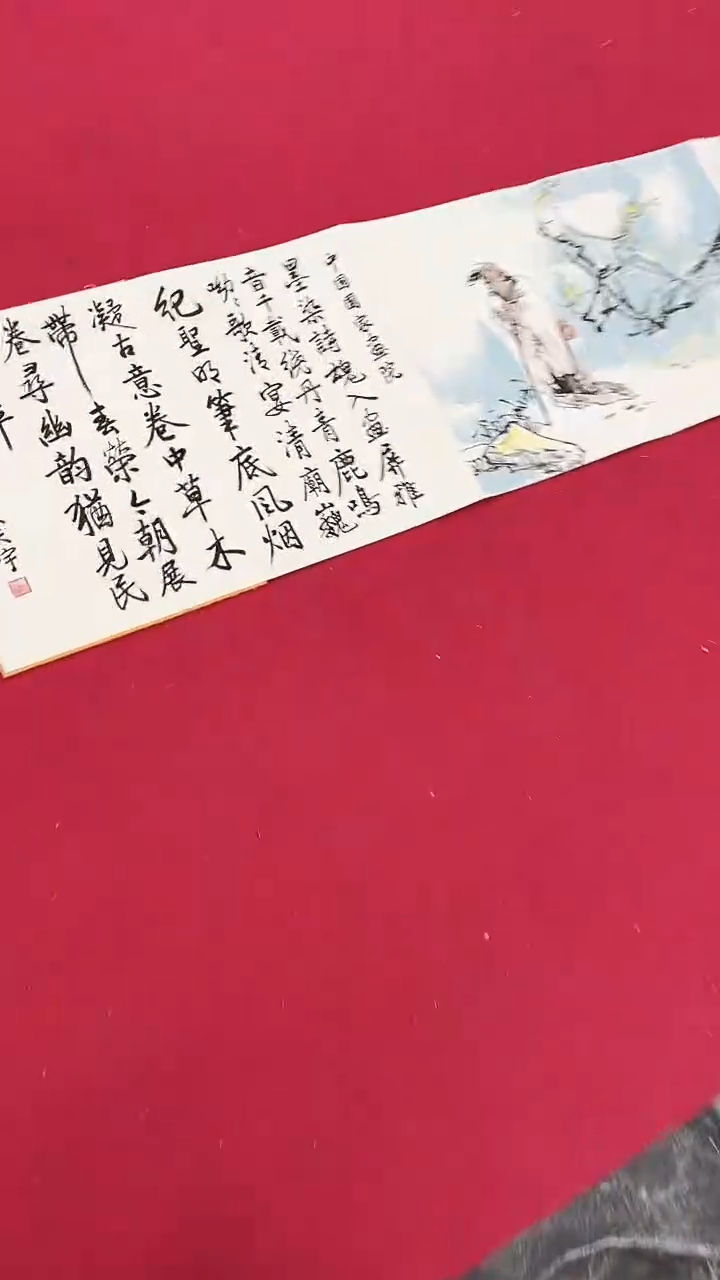 中国国家畫院
墨染詩魂入畫屏雅
音千載統丹青鹿鳴
呦〻歌清宴清廟巍〻
紀聖明筆底风烟
凝古意卷中草木
帶春榮今朝展
卷尋幽韵猶見民